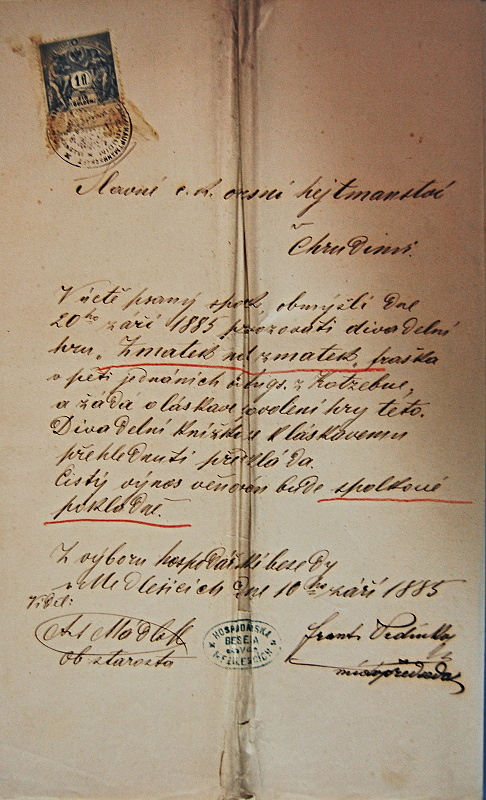 10
Slavné c. k. okresní hejtmanství
v
Chrudimi.
V úctě psaný spolek obmýšlí dne
20ho září 1885 provozovati divadelní
hru „Zmatek nad zmatek„ fraška
v pěti jednáních z Kotzebue,
a žádá o láskavé povolení hry této.
Divadelní knížku k láskavému
přehlednutí předkládá.
Čistý výnos věnován bude spolkové
pokladně.
Z výboru hospodářské besedy
v Medlešicích dne 10ho září 1885
Viděl:
Ant Mádlo
obstarosta
HOSPODÁŘSKÁ
BESEDA
Frant.
místopředseda